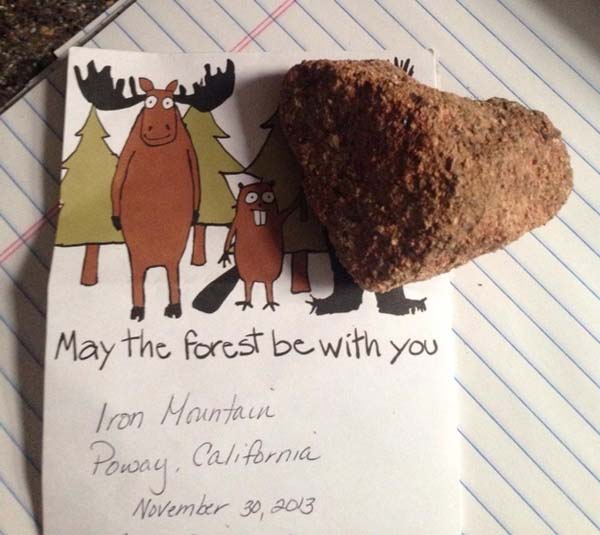 May the forest be with you
Iron Mountain
Poway, California
November 30, 2013